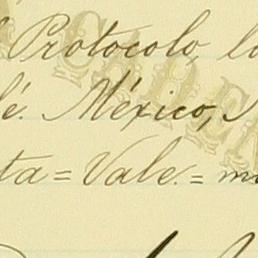 Protocolo, lo
é. México,
ta = Vale. = m